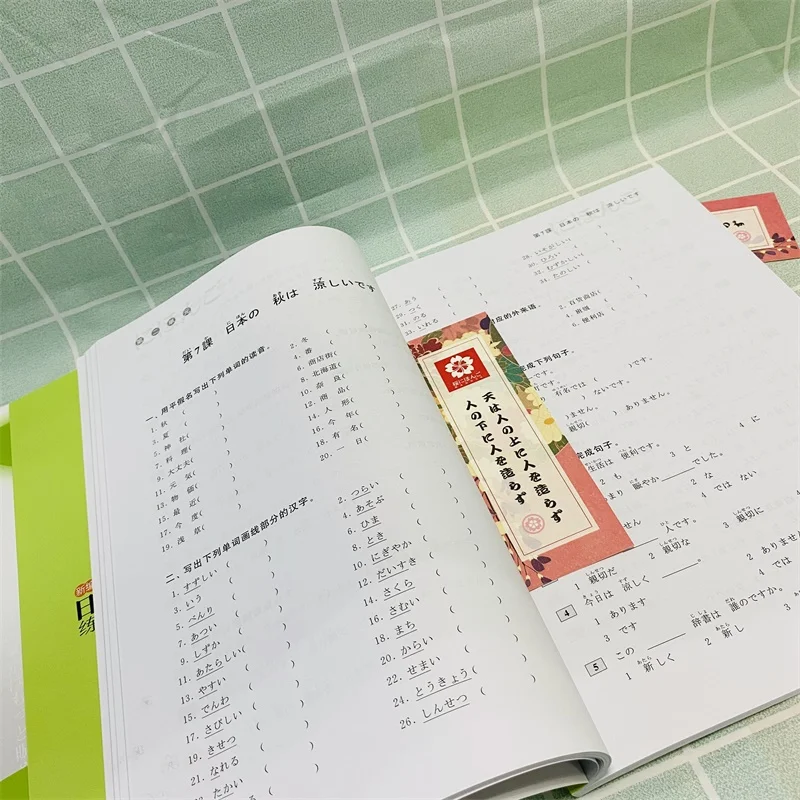 第7課 日本の 秋は 涼しいです
一、用平假名写出下列单词的读音。
1. 秋 ( )
2. 冬 ( )
3. 夏 ( )
4. 番 ( )
5. 神 社 ( )
6. 商店街 ( )
7. 料 理 ( )
8. 北海道 ( )
9. 大丈夫 ( )
10. 奈 良 ( )
11. 元 気 ( )
12. 商 品 ( )
13. 物 価 ( )
14. 人 形 ( )
15. 最 近 ( )
16. 今 年 ( )
17. 今 度 ( )
18. 有 名 ( )
19. 浅 草 ( )
20. 一 日 ( )
二、写出下列单词画线部分的汉字。
1. すずしい ( )
2. つらい ( )
3. いう ( )
4. あそぶ ( )
5. べんり ( )
6. ひま ( )
7. あつい ( )
8. とき ( )
9. しずか ( )
10. にぎやか ( )
11. あたらしい ( )
12. だいすき ( )
13. やすい ( )
14. さくら ( )
15. でんわ ( )
16. さむい ( )
17. さびしい ( )
18. まち ( )
19. きせつ ( )
20. からい ( )
21. なれる ( )
22. せまい ( )
たかい ( )
24. とうきょう ( )
26. しんせつ ( )
第7課 日本の 秋は 涼しいです
27. あう ( )
28. いそがしい ( )
29. つく ( )
30. ひろい ( )
31. のる ( )
32. むずかしい ( )
33. いれる ( )
34. たのしい ( )
应的外来语
2. 百货商店 ( )
4. 麻烦 ( )
6. 便利店 ( )
完成下列句子。
有名では ( )
ないです。
ません。
親切 ( ) ありません。
完成句子。
生活は 便利です。
2 も 3 と 4 に
まり 賑やか でした。
2 な
4 では ない
せん 人です。
親切だ 2 親切な 3 親切に
4 今日は 涼しく 。
1 あります 2 ありません
3 です 4 では
5 この 辞書は 誰のですか。
1 新しく 2 新し 3
天は人の上に人を造らず
人の下に人を造らず